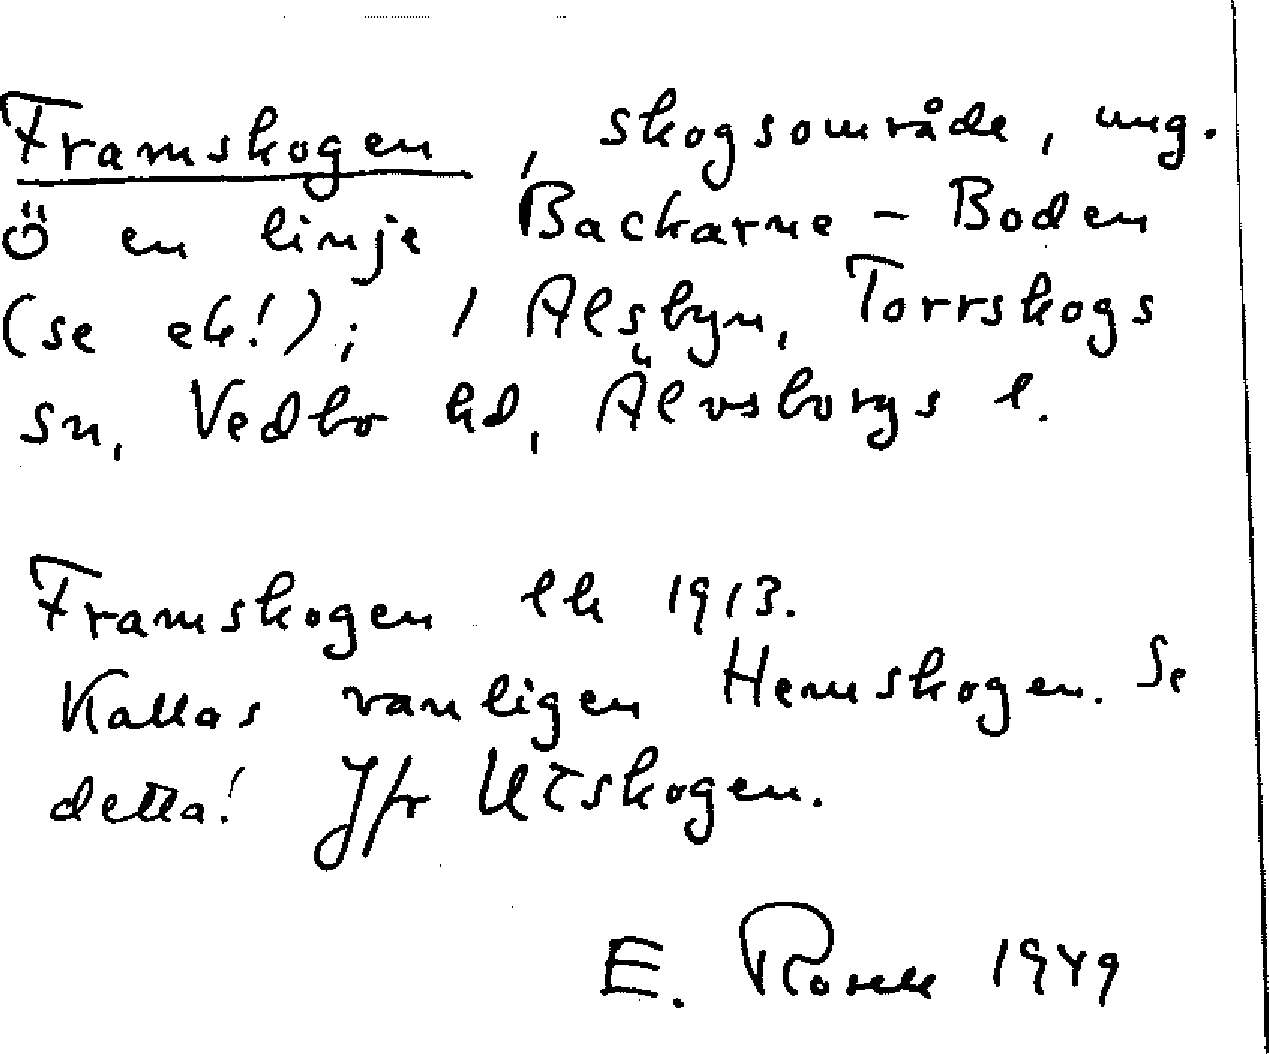 Framskogen, skogsområde, ung.
Ö en linje Backarne - Boden
(se ek!); i Alsbyn, Torrskogs
sn, Vedbo hd, Älvsborgs l.
Framskogen ek 1913.
Kallas vanligen Hemskogen. Se
detta! Jfr Utskogen.
E. Rosell 1949